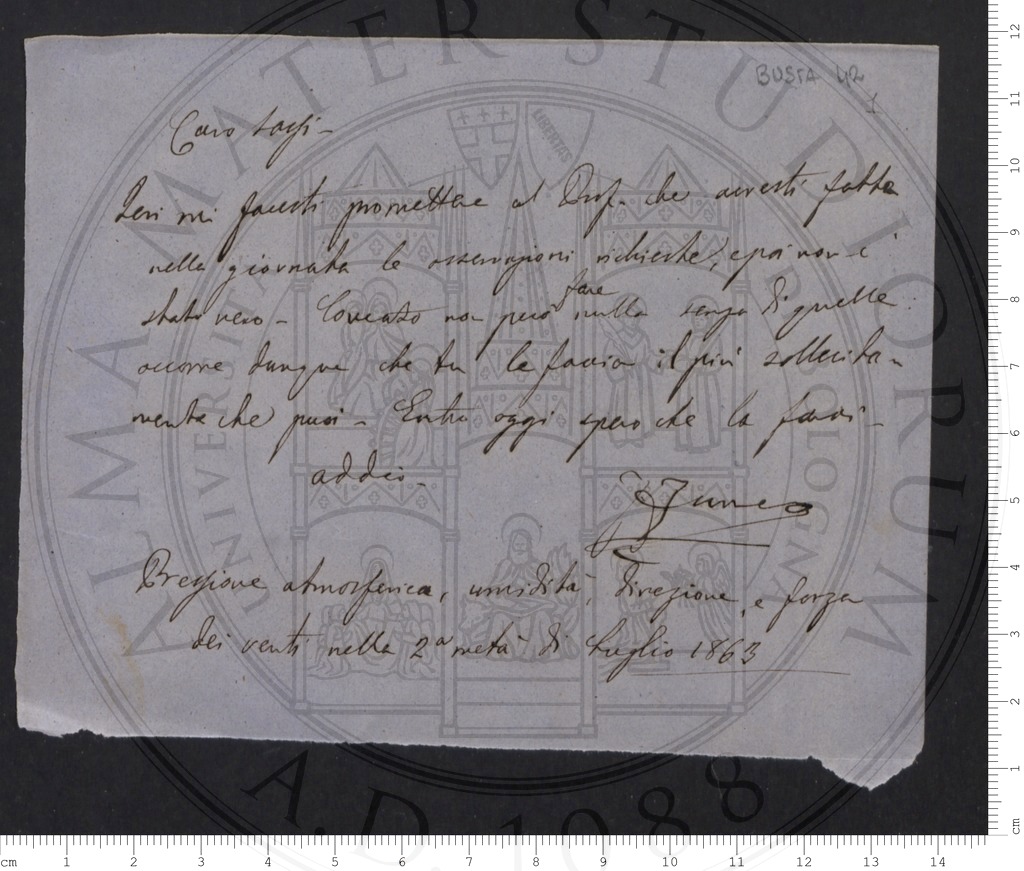 BUSTA 42
1
Caro Sassi -
Ieri mi facesti promettere al Prof. che avresti fatte
nella giornata le osservazioni richieste, e poi non è
stato vero - Lorenzo non può fare nulla senza di quelle
occorre dunque che tu le faccia il più sollecita-
mente che puoi - Entro oggi spero che la farai -
addio -
Pressione atmosferica, umidità, direzione, e forza
dei venti nella 2a metà di Luglio 1863
ALMA MATER STUDIORUM
UNIVERSITÀ DI BOLOGNA
LIBERTAS
A.D. 1088
cm 1 2 3 4 5 6 7 8 9 10 11 12 13 14
cm 1 2 3 4 5 6 7 8 9 10 11 12